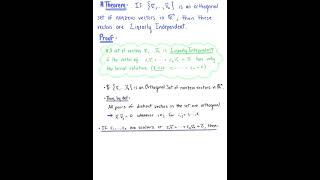 * Theorem: If {v₁,...,vₖ} is an orthogonal
set of nonzero vectors in ℝⁿ, then these
vectors are Linearly Independent.
Proof:
* A set of vectors v₁ ... vₖ is Linearly Independent
if the vector eq c₁v₁ + ... + cₖvₖ = 0 has only
the trivial solution
• If {v₁,...,vₖ} is an Orthogonal Set of nonzero vectors in ℝⁿ.
• Then, by def:
All pairs of distinct vectors in the set are orthogonal
→ vᵢ·vⱼ = 0 whenever i≠j for i,j = 1...k
• If c₁,...,cₖ are scalars st c₁v₁ + ... + cₖvₖ = 0, then: